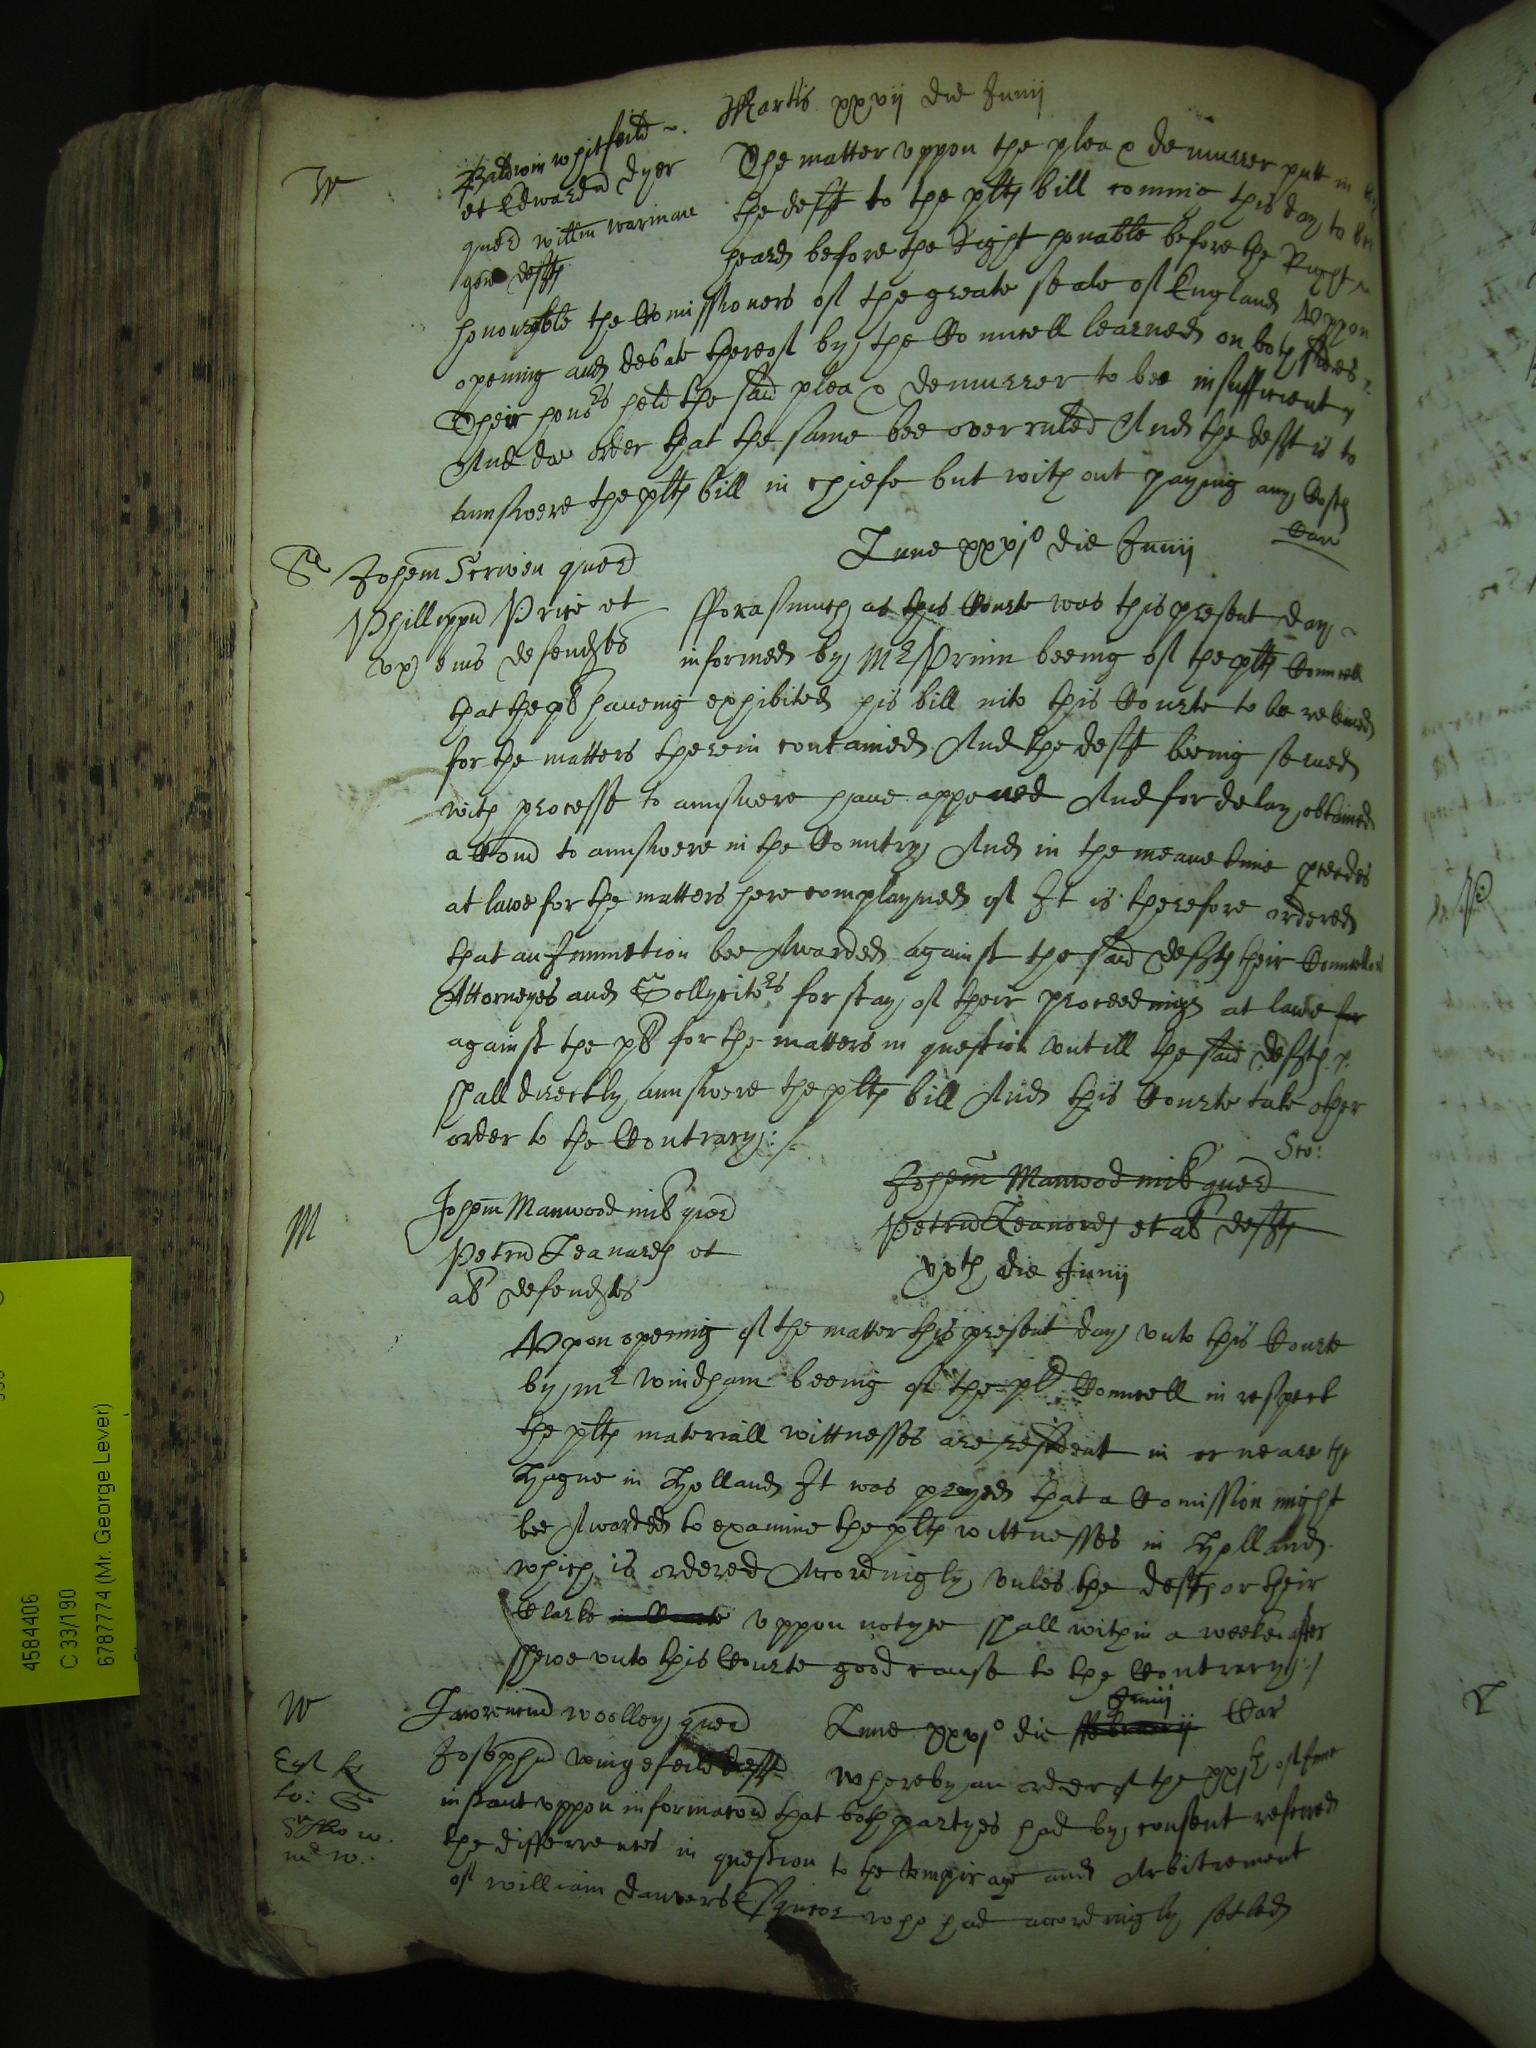 Martis xxvij die Junij
W
Baldwin Whitfeild
et Edwardū Dyer
quer Willm Warman
gen defft
The matter vppon the plea & demurrer putt in by
the defft to the plts bill comeing this day to bee
heard before the Right honable before the Right
honourable the Comissioners of the greate seale of England Vppon
opening and debate thereof by the Councell learned on both sides
Their honors held the said plea & demurrer to bee insufficient
And doe order that the same bee overruled And the defft is to
aunswere the pltes bill in chiefe but without paying any Costs
Car
S
Johem Scriven quer
Phillippū Price et
vx eius defendtes
Lune xxvjo die Junij
Fforasmuch as this Courte was this present day
informed by Mr Prinn beeing of the pltes Councell
that the pl haueing exhibited his bill into this Courte to be releiued
for the matters therein contained And the defft beeing serued
with processe to aunswere haue appered And for delay obtained
a Comd to aunswere in the Countrey And in the meane time proceedes
at lawe for the matters here complayned of It is therefore ordered
that an Iniunction bee Awarded against the said deffts their Councellors
Attorneyes and Sollycitors for stay of their proceedings at lawe for
against the pl for the matters in question vntill the said deffts
shall directly aunswere the pltes bill And this Courte take other
order to the Contrary
Sco:
M
Johem Manwood mil quer
Petrū Leanards et
al defendtes
Johem Manwood mil quer
Petrū Leonards et al deffts
xxth die Junij
Vpon opening of the matter this present day vnto this Courte
by Mr Windham beeing of the pld Councell in respect
the pltes materiall wittnesses are resident in or neare the
Hague in Holland It was prayed that a Comission might
bee Awarded to examine the pltes wittnesses in Holland
which is ordered Accordingly vnles the deffts or their
Clarke in Courte vppon notyce shall within a weeke after
shewe vnto this Courte good cause to the Contrary
W
Lawrencū Woolley quer
Josephū Wingefeild defft
Lune xxvjo die
Junij
Car
Whereby an order of the xxjth of June
instant vppon informacon that both partyes had by consent referred
the differrences in question to the Vmpirage and Arbitrement
of William Danvers Esquior who had accordingly setled
4584406
C 33/190
6787774 (Mr. George Lever)